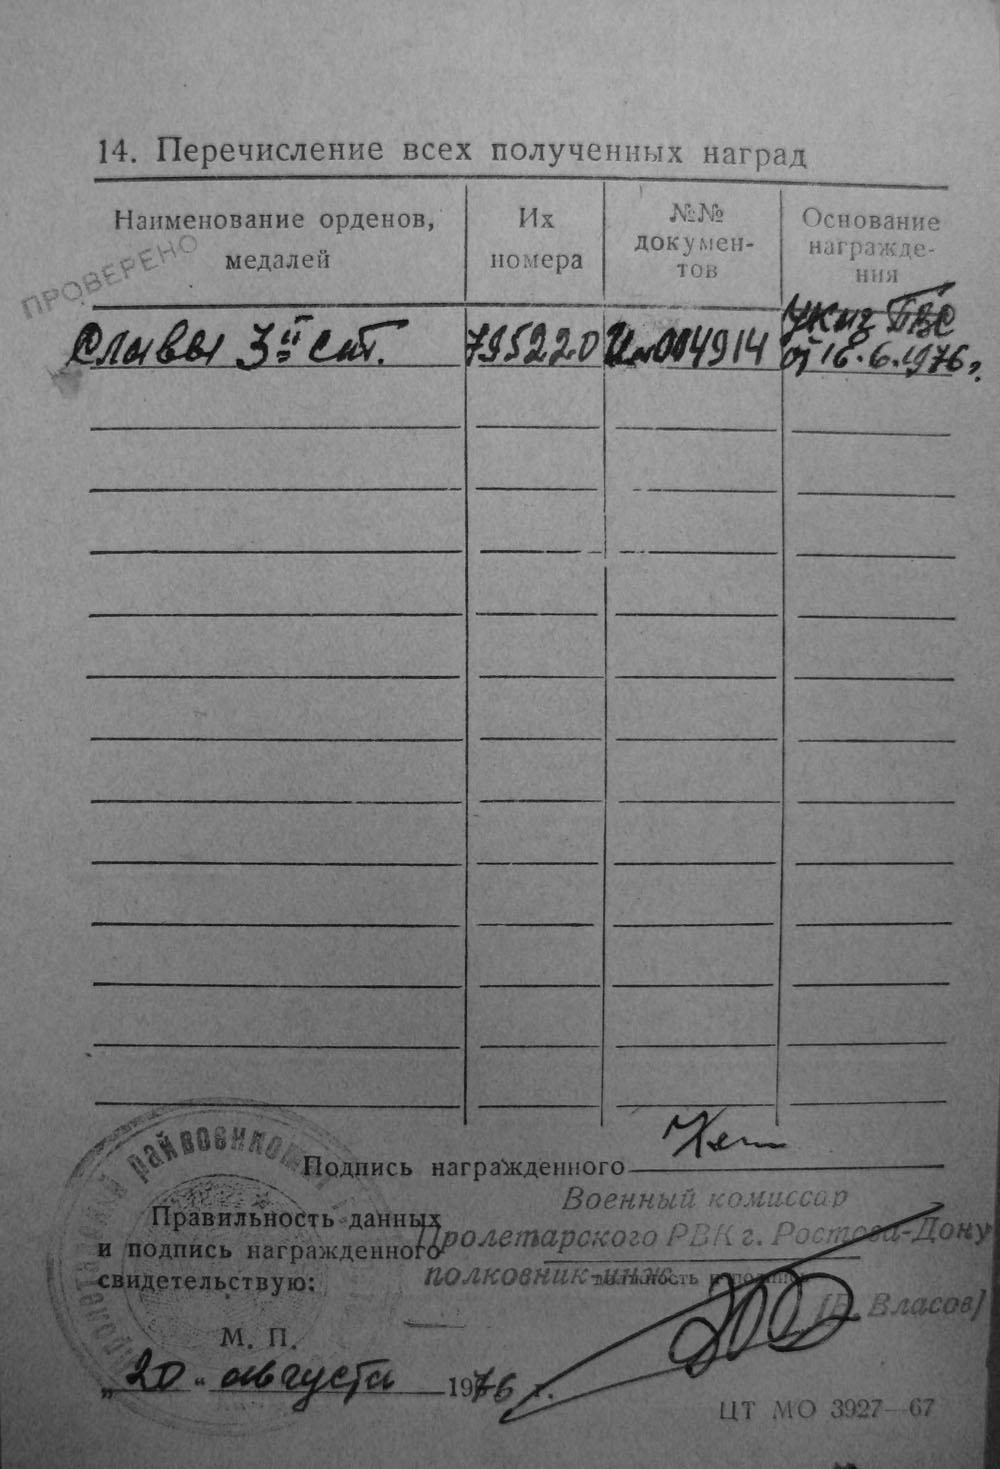 14. Перечисление всех полученных наград
Наименование орденов, медалей
Их номера
№№ докумен-
тов
Основание
награжде-
ния
ПРОВЕРЕНО
Славы 3й ст.
795220
004914
Указ ПВС
от 16.6.1976г.
Подпись награжденного
Военный комиссар
Правильность данных
Пролетарского РВК г. Ростова-Дону
и подпись награжденного
полковник-инж.
свидетельствую:
должность и подпись
(В. Власов)
М. П.
„20" августа 1976 г.
ЦТ МО 3927—67
райвоенком